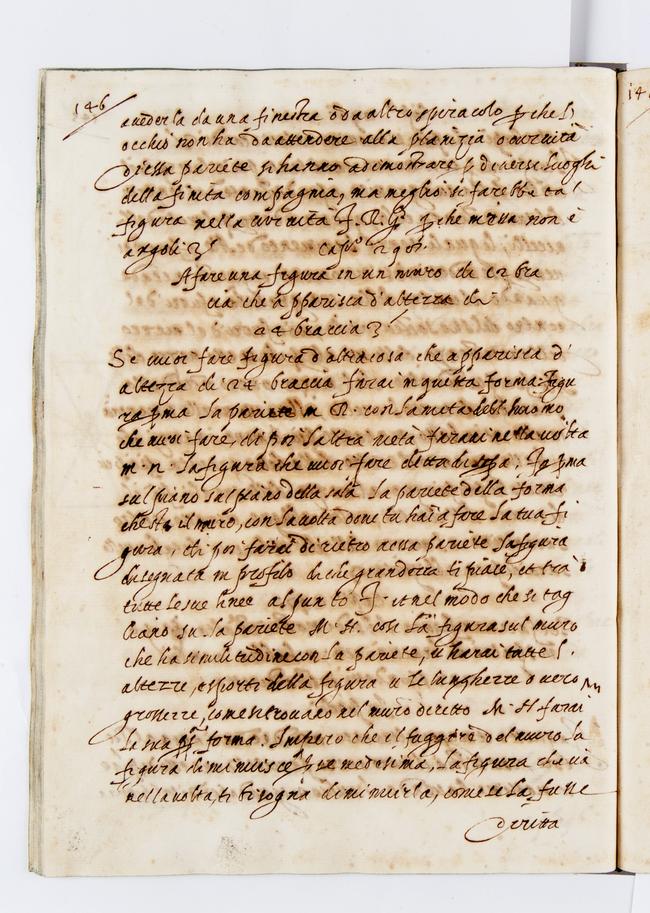 146
a vederla da una finestra o da altro spiracolo p che l'
occhio non ha da attendere alla planizia o curvità
di essa pariete si hanno a dimostrare p diversi luoghi
della finita compagnia, ma meglio si farebbe tal
figura nella curvità J. R. G. p che in una non è
angoli
A fare una figura in un muro di 12 bra
cia che apparisca d'altezza di
24 braccia
Se vuoi fare figura o altra cosa che apparisca d'
altezza di 24 braccia farai in questa forma: figu
ra pma la pariete m R. con la metà dell' huomo
che vuoi fare, di poi l'altra metà farai nella volta
m. n. la figura che vuoi fare detta di sopa, fa pma
sul piano della sala la pariete della forma
che sta il muro, con la volta dove tu hai a fare la tua fi
gura, di poi farai di rietro a essa pariete la figura
disegnata in profilo di che grandezza ti piace, et trà
tutte le sue linee al punto J. et nel modo che si tag
liano su la pariete M. H. cosi la figura sul muro
che ha similitudine con la pariete, et harai tutte l'
altezze, e sporti della figura et le lunghezze overo
grossezze, come si trovano nel muro diretto M. H farai
la sua forma. Impero che il fuggere del muro la
figura diminuisce p se medesima, la figura che và
nella volta, ti bisogna diminuirla, come se la fusse
diritta